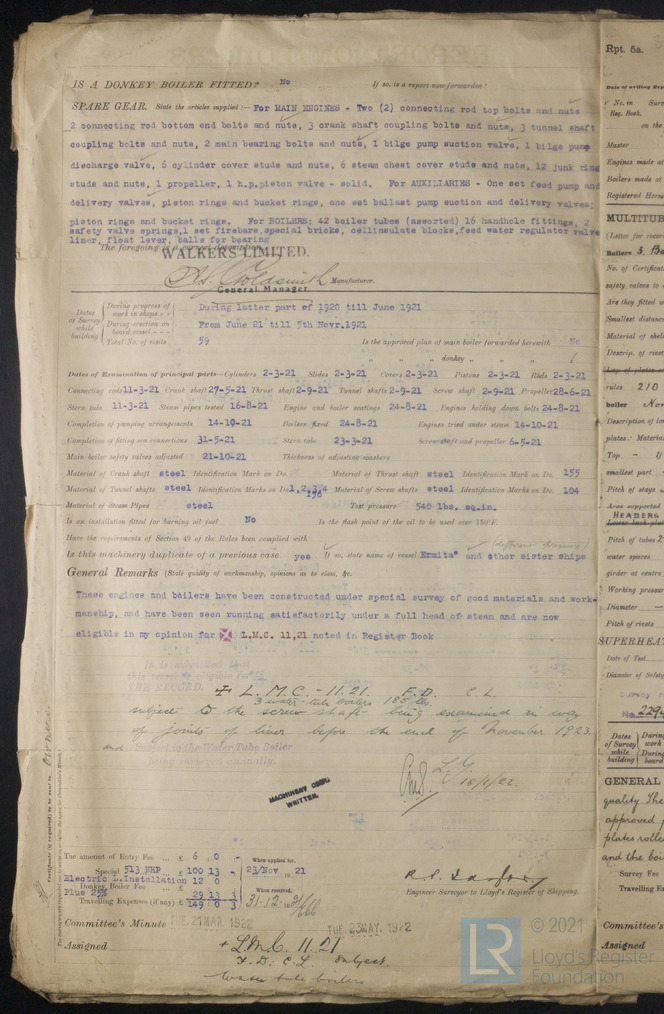 IS A DONKEY BOILER FITTED? No If so, is a report now forwarded?
SPARE GEAR. State the articles supplied:— For MAIN ENGINES - Two (2) connecting rod top bolts and nuts
2 connecting rod bottom end bolts and nuts, 3 crank shaft coupling bolts and nuts, 3 tunnel shaft
coupling bolts and nuts, 2 main bearing bolts and nuts, 1 bilge pump suction valve, 1 bilge pump
discharge valve, 6 cylinder cover studs and nuts, 6 steam chest cover studs and nuts, 12 junk ring
studs and nuts, 1 propeller, 1 h.p.piston valve - solid. For AUXILIARIES - One set feed pump and
delivery valves, piston rings and bucket rings, one set ballast pump suction and delivery valves;
piston rings and bucket rings. For BOILERS; 42 boiler tubes (assorted) 16 handhole fittings, 2
safety valve springs,1 set firebars,special bricks, cellinsulate blocks,feed water regulator valve
liner, float lever, balls for bearing
The foregoing is a correct description,
WALKERS LIMITED.
Goldsmith Manufacturer.
General Manager
Dates of Survey while building
During progress of work in shops - - During latter part of 1920 till June 1921
During erection on board vessel - - - From June 21 till 5th Novr.1921
Total No. of visits 59 Is the approved plan of main boiler forwarded herewith No
" " " donkey " " "
Dates of Examination of principal parts—Cylinders 2-3-21 Slides 2-3-21 Covers 2-3-21 Pistons 2-3-21 Rods 2-3-21
Connecting rods 11-3-21 Crank shaft 27-5-21 Thrust shaft 2-9-21 Tunnel shafts 2-9-21 Screw shaft 2-9-21 Propeller 28-6-21
Stern tube 11-3-21 Steam pipes tested 16-8-21 Engine and boiler seatings 24-8-21 Engines holding down bolts 24-8-21
Completion of pumping arrangements 14-10-21 Boilers fixed 24-8-21 Engines tried under steam 14-10-21
Completion of fitting sea connections 31-5-21 Stern tube 23-3-21 Screw shaft and propeller 6-5-21
Main boiler safety valves adjusted 21-10-21 Thickness of adjusting washers
Material of Crank shaft steel Identification Mark on Do. Material of Thrust shaft steel Identification Mark on Do. 155
Material of Tunnel shafts steel Identification Marks on Do. 1,2,3,4 156 Material of Screw shafts steel Identification Marks on Do. 104
Material of Steam Pipes steel Test pressure 540 lbs. sq.in.
Is an installation fitted for burning oil fuel No Is the flash point of the oil to be used over 150°F.
Have the requirements of Section 49 of the Rules been complied with
Is this machinery duplicate of a previous case yes If so, state name of vessel Ermita" and other sister ships
General Remarks (State quality of workmanship, opinions as to class, &c.
These engines and boilers have been constructed under special survey of good materials and work-
manship, and have been seen running satisfactorily under a full head of steam and are now
eligible in my opinion for L.M.C. 11,21 noted in Register Book
It is submitted that
this vessel is eligible for
THE RECORD. + L.M.C. - 11.21. F.D. C.L.
3 water-tube boilers 185 lbs.
subject to the screw shaft being examined in way
of joints of liner before the end of November 1923.
and Subject to the Water Tube Boiler
being surveyed annually.
18/1/22.
MACHINERY CERT.
WRITTEN.
The amount of Entry Fee ... £ 6 : 0 : When applied for,
Special 513 NHP £ 100 13 - 23/Nov 1921
Electric L.Installation 12 0
Donkey Boiler Fee £
Plus 25% 29 13 3 When received,
Travelling Expenses (if any) £ 149 0 3 31-12-
Engineer Surveyor to Lloyd's Register of Shipping.
Committee's Minute TUE. 21 MAR. 1922 TUE. 23 MAY. 1922
Assigned + L.M.C. 11.21
F.D. C.L. Subject
Water tube boilers
© 2021
LR Lloyd's Register
Foundation
Rpt. 5a.
Date of writing Rep
No. in Surv
Reg. Book.
on the
Master
Engines made at
Boilers made at
Registered Horse
MULTITUB
(Letter for record
No. of Certificat
safety valves to
Are they fitted w
Smallest distance
Material of shell
Descrip. of rivet
rules 210
boiler
Description of lon
plates: Material
Top
smallest part
Pitch of stays
Area supported
HEADERS
Pitch of tubes
water spaces
girder at centre
Working pressure
Diameter
Pitch of rivets
SUPERHEAT
Date of Test
Diameter of Safety
Survey
No. 229
Dates of Survey while building
During work
During board
GENERAL
quality The
approved
plates rolled
and the boi
Survey Fee
Travelling Ex
Committee's
Assigned